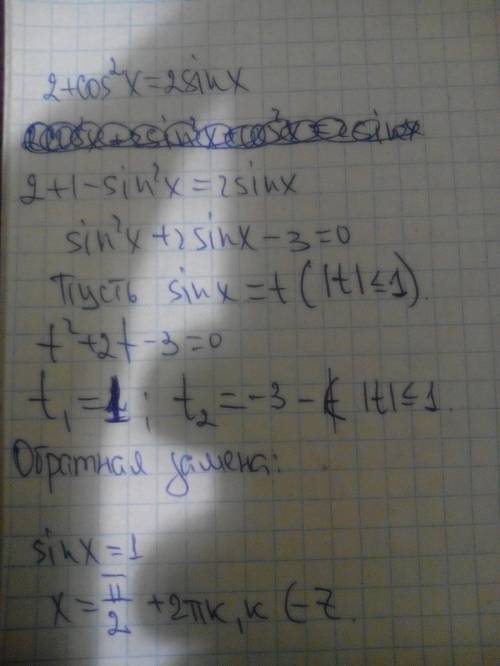 2+cos²x=2sinx
2+1-sin²x=2sinx
sin²x+2sinx-3=0
Пусть sinx=t (|t|≤1).
t²+2t-3=0
t₁=1; t₂=-3-∉ |t|≤1.
Обратная замена:
sinx=1
x=π/2+2πk, k∈Z.